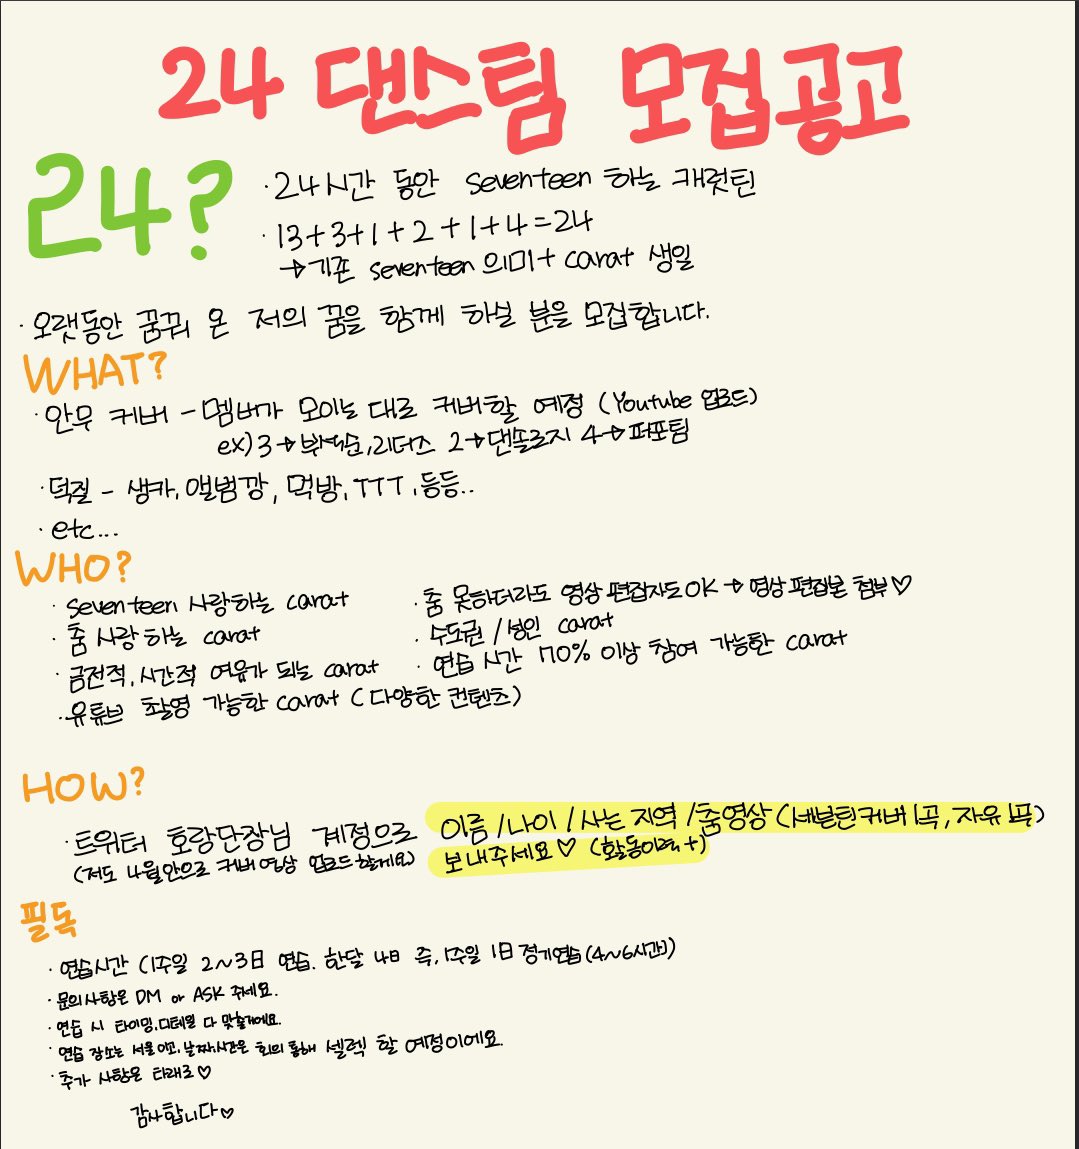 24 댄스팀 모집공고
24?
· 24시간 동안 seventeen 하는 캐럿틴
· 13+3+1+2+1+4=24
→ 기존 seventeen 의미 + carat 생일
· 오랫동안 꿈꿔 온 저의 꿈을 함께 하실 분을 모집합니다.
WHAT?
· 안무 커버 - 멤버가 모이는 대로 커버할 예정 (Youtube 업로드)
ex) 3→부석순, 리더즈 2→댄쏠로지 4→퍼포팀
· 덕질 - 생카, 앨범깡, 먹방, TTT, 등등..
· etc...
WHO?
· seventeen 사랑하는 carat
· 춤 사랑하는 carat
· 금전적, 시간적 여유가 되는 carat
· 유튜브 촬영 가능한 carat (다양한 컨텐츠)
· 춤 못하더라도 영상 편집자도 OK → 영상 편집본 첨부♡
· 수도권 / 성인 carat
· 연습 시간 70% 이상 참여 가능한 carat
HOW?
· 트위터 호랑단장님 계정으로 이름 / 나이 / 사는 지역 / 춤영상 (세븐틴커버 1곡, 자유 1곡)
(저도 4월안으로 커버영상 업로드 할게요) 보내주세요♡ (활동이력+)
필독
· 연습시간 (1주일 2~3日 연습. 한달 4日 즉, 1주일 1日 정기연습 (4~6시간))
· 문의사항은 DM or ASK 주세요.
· 연습 시 타이밍, 디테일 다 맞출거에요.
· 연습 장소는 서울이고, 날짜, 시간은 회의 통해 셀렉 할 예정이에요.
· 추가 사항은 타래로♡
감사합니다♡